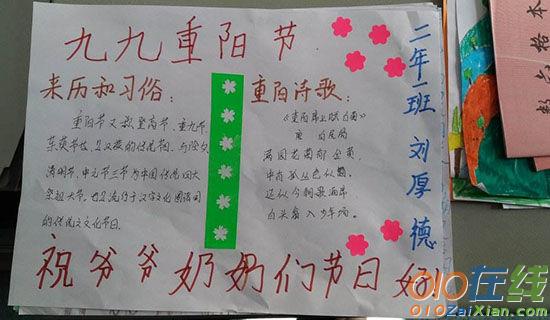 九九重阳节
来历和习俗：
重阳节又叫登高节、重九节、
茱萸节也是汉族的传统节，与除夕、
清明节、中元节三节为中国传统四大
祭祖大节，也是流行于汉字文化圈诸国
的传统文化节日。
重阳诗歌：
满园花菊郁金黄，
中有孤丛色似霜。
还似今朝歌酒席
白头翁入少年场。
二年一班 刘厚德
祝爷爷奶奶们节日好
010在线
010ZaiXian.com